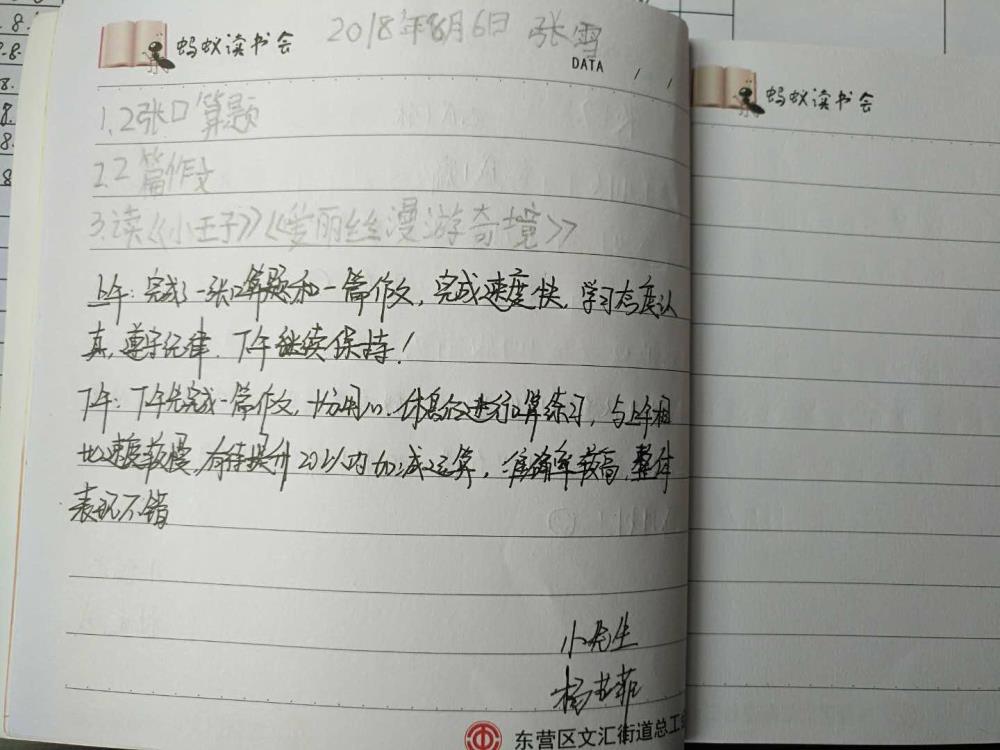 蚂蚁读书会 2018年8月6日 张雪
DATA / /
1.2张口算题
2.2篇作文
3.读《小王子》《爱丽丝漫游奇境》
上午:完成了一张口算题和一篇作文,完成速度快,学习态度认
真,遵守纪律,下午继续保持!
下午:下午先完成一篇作文,十分用心.休息后进行口算练习,与上午相
比速度较慢,有待提升20以内加减运算,准确率较高,整体
表现不错
小先生
杨 菲
东营区文汇街道总工
蚂蚁读书会
8.
8.
8.
8